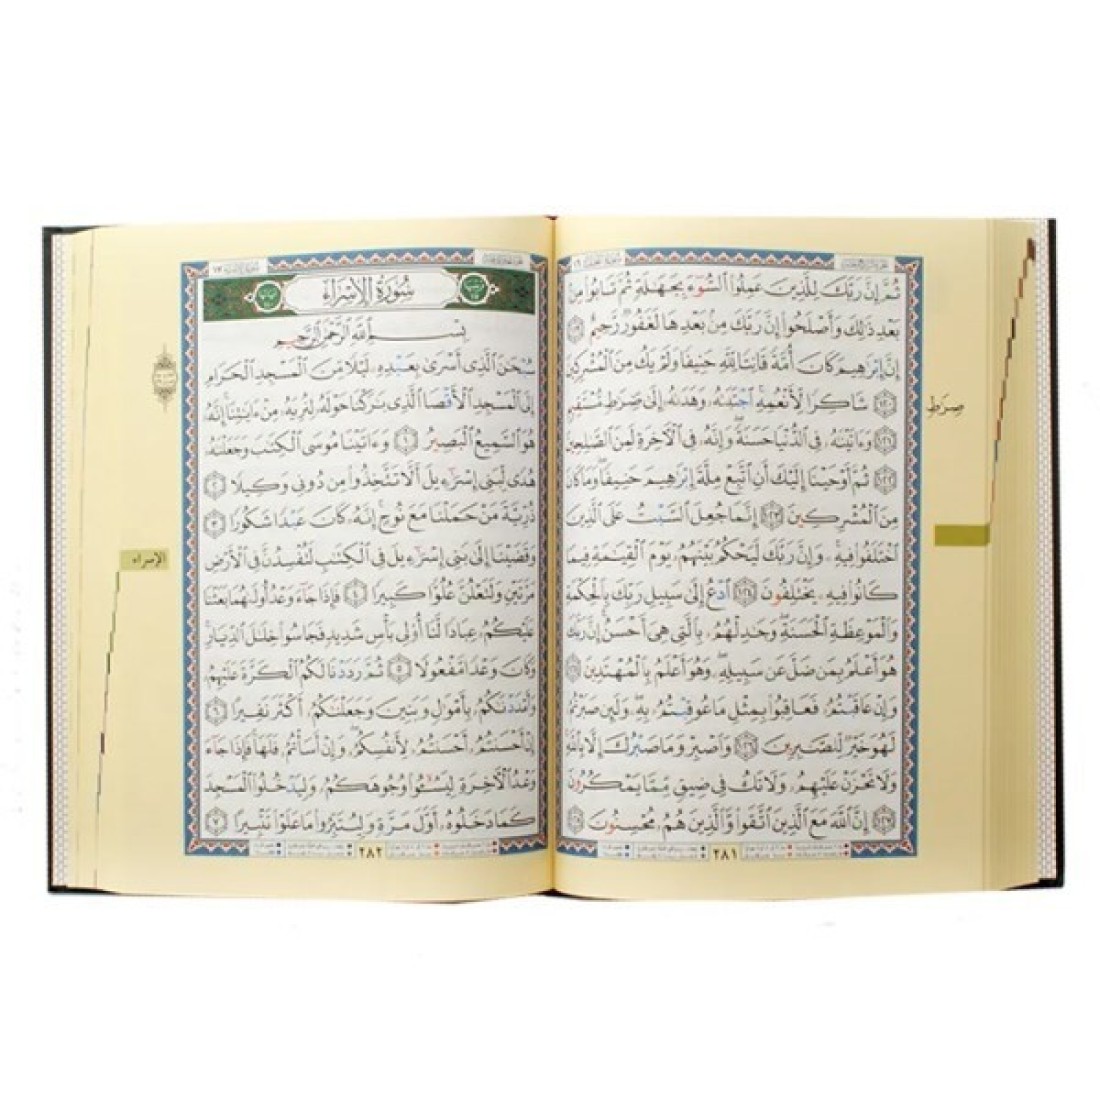 ثُمَّ إِنَّ رَبَّكَ لِلَّذِينَ عَمِلُوا۟ ٱلسُّوٓءَ بِجَهَٰلَةٍ ثُمَّ تَابُوا۟ مِنۢ
بَعْدِ ذَٰلِكَ وَأَصْلَحُوٓا۟ إِنَّ رَبَّكَ مِنۢ بَعْدِهَا لَغَفُورٌ رَّحِيمٌ ١١٩
إِنَّ إِبْرَٰهِيمَ كَانَ أُمَّةً قَانِتًا لِّلَّهِ حَنِيفًا وَلَمْ يَكُ مِنَ ٱلْمُشْرِكِينَ
١٢٠ شَاكِرًا لِّأَنْعُمِهِ ٱجْتَبَىٰهُ وَهَدَىٰهُ إِلَىٰ صِرَٰطٍ مُّسْتَقِيمٍ
صِرَٰطٍ
١٢١ وَءَاتَيْنَٰهُ فِى ٱلدُّنْيَا حَسَنَةً وَإِنَّهُۥ فِى ٱلْءَاخِرَةِ لَمِنَ ٱلصَّٰلِحِينَ
١٢٢ ثُمَّ أَوْحَيْنَآ إِلَيْكَ أَنِ ٱتَّبِعْ مِلَّةَ إِبْرَٰهِيمَ حَنِيفًا وَمَا كَانَ
مِنَ ٱلْمُشْرِكِينَ ١٢٣ إِنَّمَا جُعِلَ ٱلسَّبْتُ عَلَى ٱلَّذِينَ
ٱخْتَلَفُوا۟ فِيهِ وَإِنَّ رَبَّكَ لَيَحْكُمُ بَيْنَهُمْ يَوْمَ ٱلْقِيَٰمَةِ فِيمَا
كَانُوا۟ فِيهِ يَخْتَلِفُونَ ١٢٤ ٱدْعُ إِلَىٰ سَبِيلِ رَبِّكَ بِٱلْحِكْمَةِ
وَٱلْمَوْعِظَةِ ٱلْحَسَنَةِ وَجَٰدِلْهُم بِٱلَّتِى هِىَ أَحْسَنُ إِنَّ رَبَّكَ
هُوَ أَعْلَمُ بِمَن ضَلَّ عَن سَبِيلِهِۦ وَهُوَ أَعْلَمُ بِٱلْمُهْتَدِينَ ١٢٥
وَإِنْ عَاقَبْتُمْ فَعَاقِبُوا۟ بِمِثْلِ مَا عُوقِبْتُم بِهِۦ وَلَئِن صَبَرْتُمْ
لَهُوَ خَيْرٌ لِّلصَّٰبِرِينَ ١٢٦ وَٱصْبِرْ وَمَا صَبْرُكَ إِلَّا بِٱللَّهِ
وَلَا تَحْزَنْ عَلَيْهِمْ وَلَا تَكُ فِى ضَيْقٍ مِّمَّا يَمْكُرُونَ
١٢٧ إِنَّ ٱللَّهَ مَعَ ٱلَّذِينَ ٱتَّقَوا۟ وَّٱلَّذِينَ هُم مُّحْسِنُونَ ١٢٨
٢٨١
سُورَةُ ٱلْإِسْرَاءِ
بِسْمِ ٱللَّهِ ٱلرَّحْمَٰنِ ٱلرَّحِيمِ
سُبْحَٰنَ ٱلَّذِىٓ أَسْرَىٰ بِعَبْدِهِۦ لَيْلًا مِّنَ ٱلْمَسْجِدِ ٱلْحَرَامِ
إِلَى ٱلْمَسْجِدِ ٱلْأَقْصَا ٱلَّذِى بَٰرَكْنَا حَوْلَهُۥ لِنُرِيَهُۥ مِنْ ءَايَٰتِنَآ إِنَّهُۥ
هُوَ ٱلسَّمِيعُ ٱلْبَصِيرُ ١ وَءَاتَيْنَا مُوسَى ٱلْكِتَٰبَ وَجَعَلْنَٰهُ
هُدًى لِّبَنِىٓ إِسْرَٰٓءِيلَ أَلَّا تَتَّخِذُوا۟ مِن دُونِى وَكِيلًا ٢
ذُرِّيَّةَ مَنْ حَمَلْنَا مَعَ نُوحٍ إِنَّهُۥ كَانَ عَبْدًا شَكُورًا ٣
وَقَضَيْنَآ إِلَىٰ بَنِىٓ إِسْرَٰٓءِيلَ فِى ٱلْكِتَٰبِ لَتُفْسِدُنَّ فِى ٱلْأَرْضِ
الإسراء
مَرَّتَيْنِ وَلَتَعْلُنَّ عُلُوًّا كَبِيرًا ٤ فَإِذَا جَآءَ وَعْدُ أُولَىٰهُمَا بَعَثْنَا
عَلَيْكُمْ عِبَادًا لَّنَآ أُو۟لِى بَأْسٍ شَدِيدٍ فَجَاسُوا۟ خِلَٰلَ ٱلدِّيَارِ
وَكَانَ وَعْدًا مَّفْعُولًا ٥ ثُمَّ رَدَدْنَا لَكُمُ ٱلْكَرَّةَ عَلَيْهِمْ
وَأَمْدَدْنَٰكُم بِأَمْوَٰلٍ وَبَنِينَ وَجَعَلْنَٰكُمْ أَكْثَرَ نَفِيرًا ٦
إِنْ أَحْسَنتُمْ أَحْسَنتُمْ لِأَنفُسِكُمْ وَإِنْ أَسَأْتُمْ فَلَهَا فَإِذَا جَآءَ
وَعْدُ ٱلْءَاخِرَةِ لِيَسُۥٓـُٔوا۟ وُجُوهَكُمْ وَلِيَدْخُلُوا۟ ٱلْمَسْجِدَ
كَمَا دَخَلُوهُ أَوَّلَ مَرَّةٍ وَلِيُتَبِّرُوا۟ مَا عَلَوْا۟ تَتْبِيرًا ٧
٢٨٢